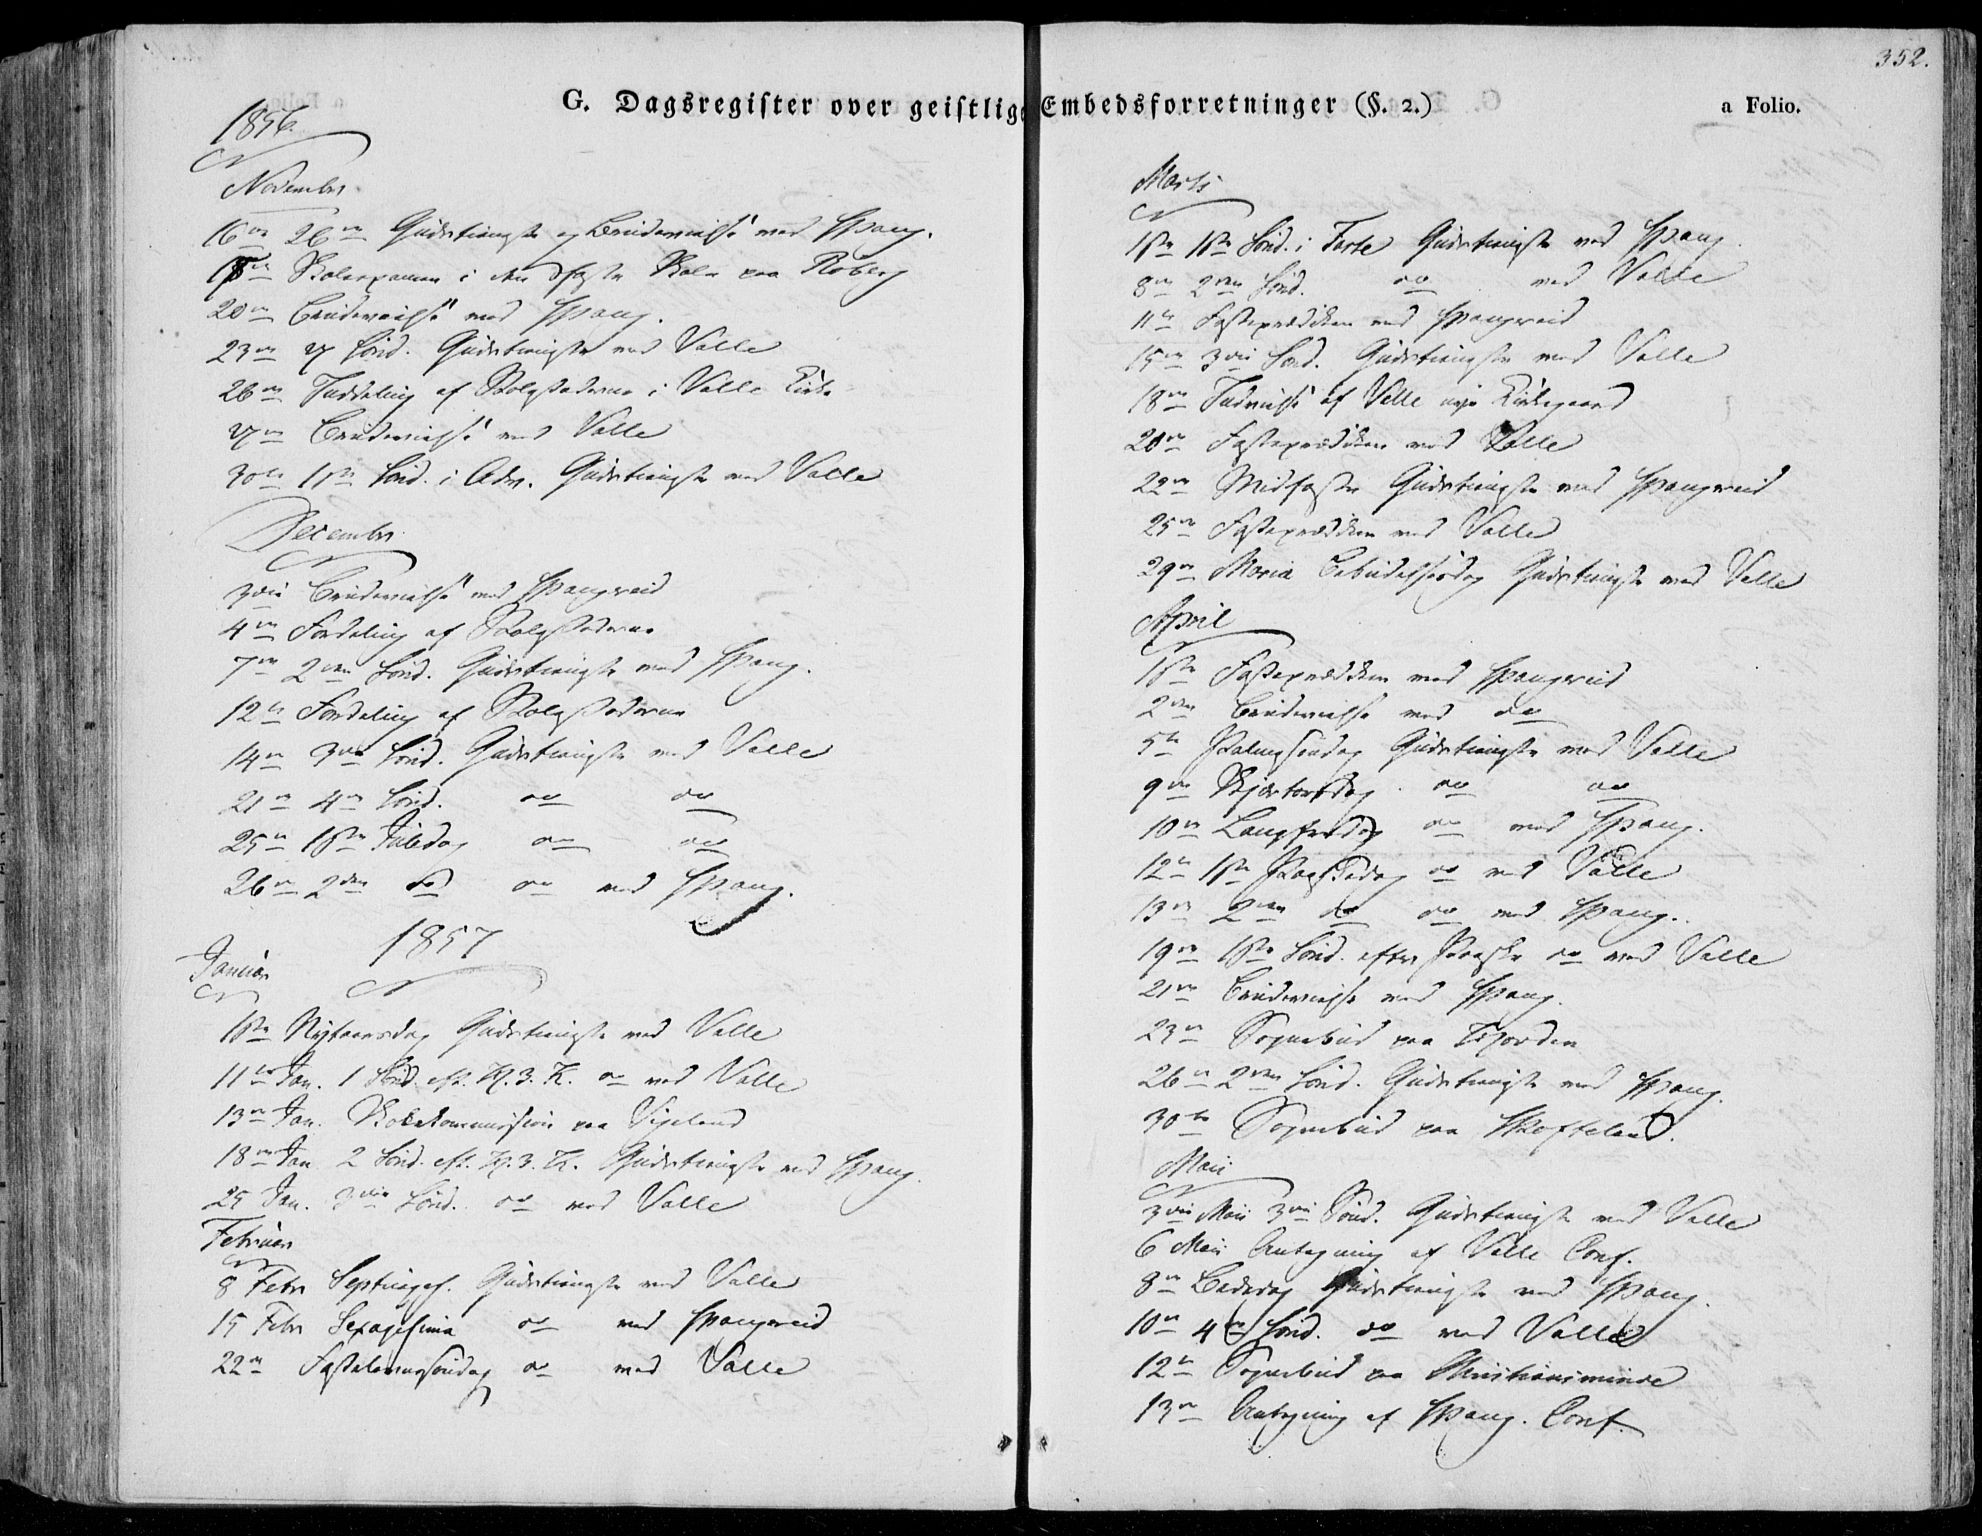 352.
G. Dagsregister over geistlige Embedsforretninger (§. 2.)
a Folio.
1856.
November
16de 26de Gudstieneste og Brudevielse ved Spang.
18de Skoleexamen i den faste Skole paa Roberg
20de Brudevielse ved Spang.
23de 27 Sønd. Gudstieneste ved Valle
26de Inddeling af Skolestederne i Valle Kirke
27de Brudevielse ved Valle
30te 1ste Sønd. i Adv. Gudstieneste ved Valle
December
3die Brudevielse ved Spangereid
4de Fordeling af Skolestederne
7de 2den Sønd. Gudstieneste ved Spang.
12te Fordeling af Skolestederne
14de 3die Sønd. Gudstieneste ved Valle
21de 4de Sønd. do do
25de 1ste Juledag do do
26de 2den do do ved Spang.
1857
Januar
1ste Nytaarsdag Gudstieneste ved Valle
11te Jan. 1 Sønd. eft. H. 3. K. do ved Valle
13de Jan. Skolekommission paa Vigeland
18de Jan 2 Sønd. eft. H. 3. K. Gudstieneste ved Spang.
25 Jan. 3die Sønd. do ved Valle
Februar
8 Febr Septuages. Gudstieneste ved Valle
15 Febr Sexagesima do ved Spangereid
22de Fastelavnssøndag do ved Valle
Marts
1ste 1ste Sønd. i Faste Gudstieneste ved Spang.
8de 2den Sønd. do ved Valle
11te Fasteprædiken ved Spangereid
15de 3die Sønd. Gudstieneste ved Valle
18de Indvielse af Valle nye Kirkegaard
20de Fasteprædiken ved Valle
22de Midfaste Gudstieneste ved Spangereid
25de Fasteprædiken ved Valle
29de Maria Bebudelsesdag Gudstieneste ved Valle
April
1ste Fasteprædiken ved Spangereid
2den Brudevielse ved do
5te Palmesøndag Gudstieneste ved Valle
9de Skjertorsdag do do
10de Langfredag do ved Spang.
12te 1ste Paaskedag do ved Valle
13de 2den do do ved Spang.
19de 1ste Sønd. efter Paaske do ved Valle
21de Brudevielse ved Spang.
23de Sognebud paa
26de 2den Sønd. Gudstieneste ved Spang.
30te Sognebud paa Skofteland.
Maii
3die Maii 3die Sønd. Gudstieneste ved Valle
6 Maii Antegning af Valle Conf.
8de Bededag Gudstieneste ved Spang.
10de 4de Sønd. do ved Valle
12te Sognebud paa Christiansminde
13de Antegning af Spang. Conf.